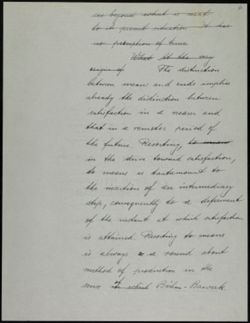 is beyond what is next
to its present situation. It has
no perception of time.
What At the very
origin of The distinction
between means and ends implies
already the distinction between
satisfaction in a nearer and
that in a remoter period of
the future. Resorting, to means
in the drive toward satisfaction,
to means is tantamount to
the insertion of an intermediary
step, consequently to a deferment
of the instant at which satisfaction
is attained. Resorting to means
is always a round about
method of production in the
sense in which Böhm-Bawerk